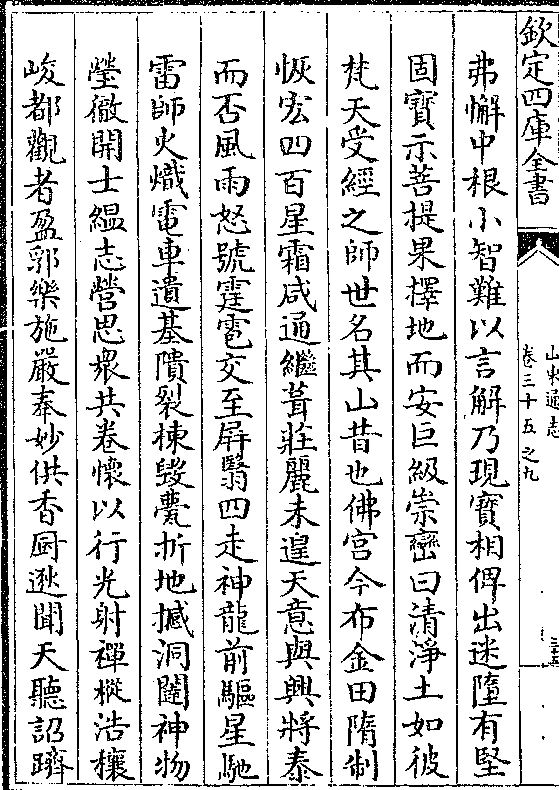 欽定四庫全書
山東通志
卷三十五之九
弗懈中根小智難以言解乃現寶相俾出迷墮有堅
固寶示菩提果擇地而安巨級崇巒曰清淨土如彼
梵天受經之師世名其山昔也佛宮今布金田隋制
恢宏四百星霜咸通繼葺莊麗未遑天意與興將泰
而否風雨怒號霆電交至屏翳四走神龍前驅星馳
雷師火熾電車遺基隤裂棟毀甍折地撼洞闢神物
瑩徹開士緼志營思衆共卷懷以行光射禪樅浩穰
峻都觀者盈郭樂施嚴奉妙供香厨遜聞天聽詔躋